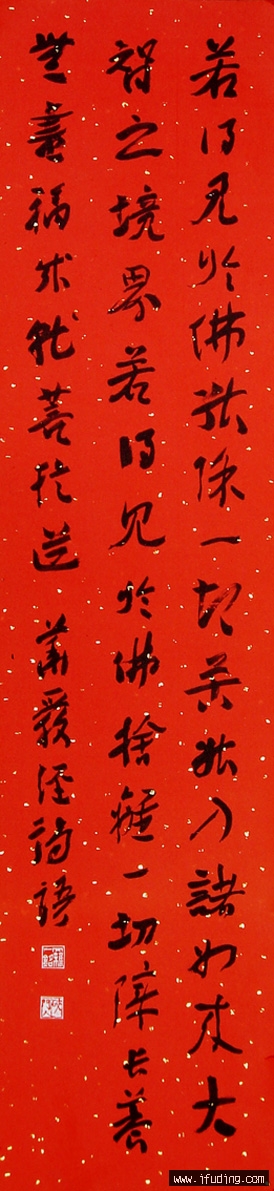 若得见於佛能除一切苦能入諸如来大
智之境界若得见於佛捨離一切障长養
無盡福成就菩提道 華嚴经詩語
www.ifuding.com